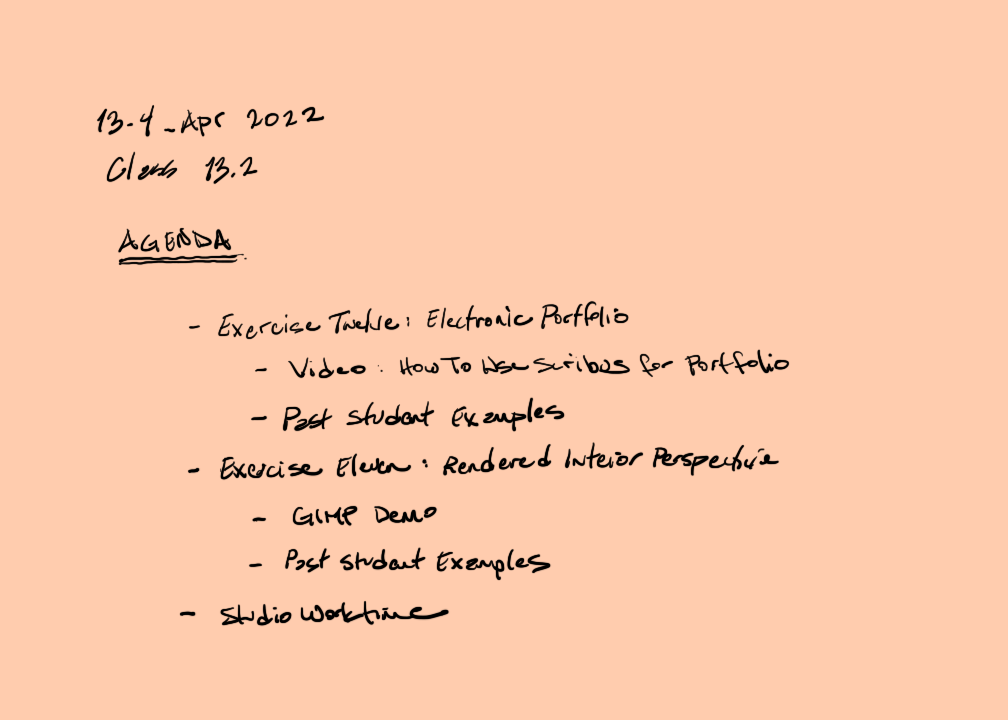 13-4-Apr 2022
Class 13.2
AGENDA
- Exercise Twelve: Electronic Portfolio
- Video: How To Use Scribus for Portfolio
- Past Student Examples
- Exercise Eleven: Rendered Interior Perspective
- GIMP Demo
- Past Student Examples
- Studio Worktime